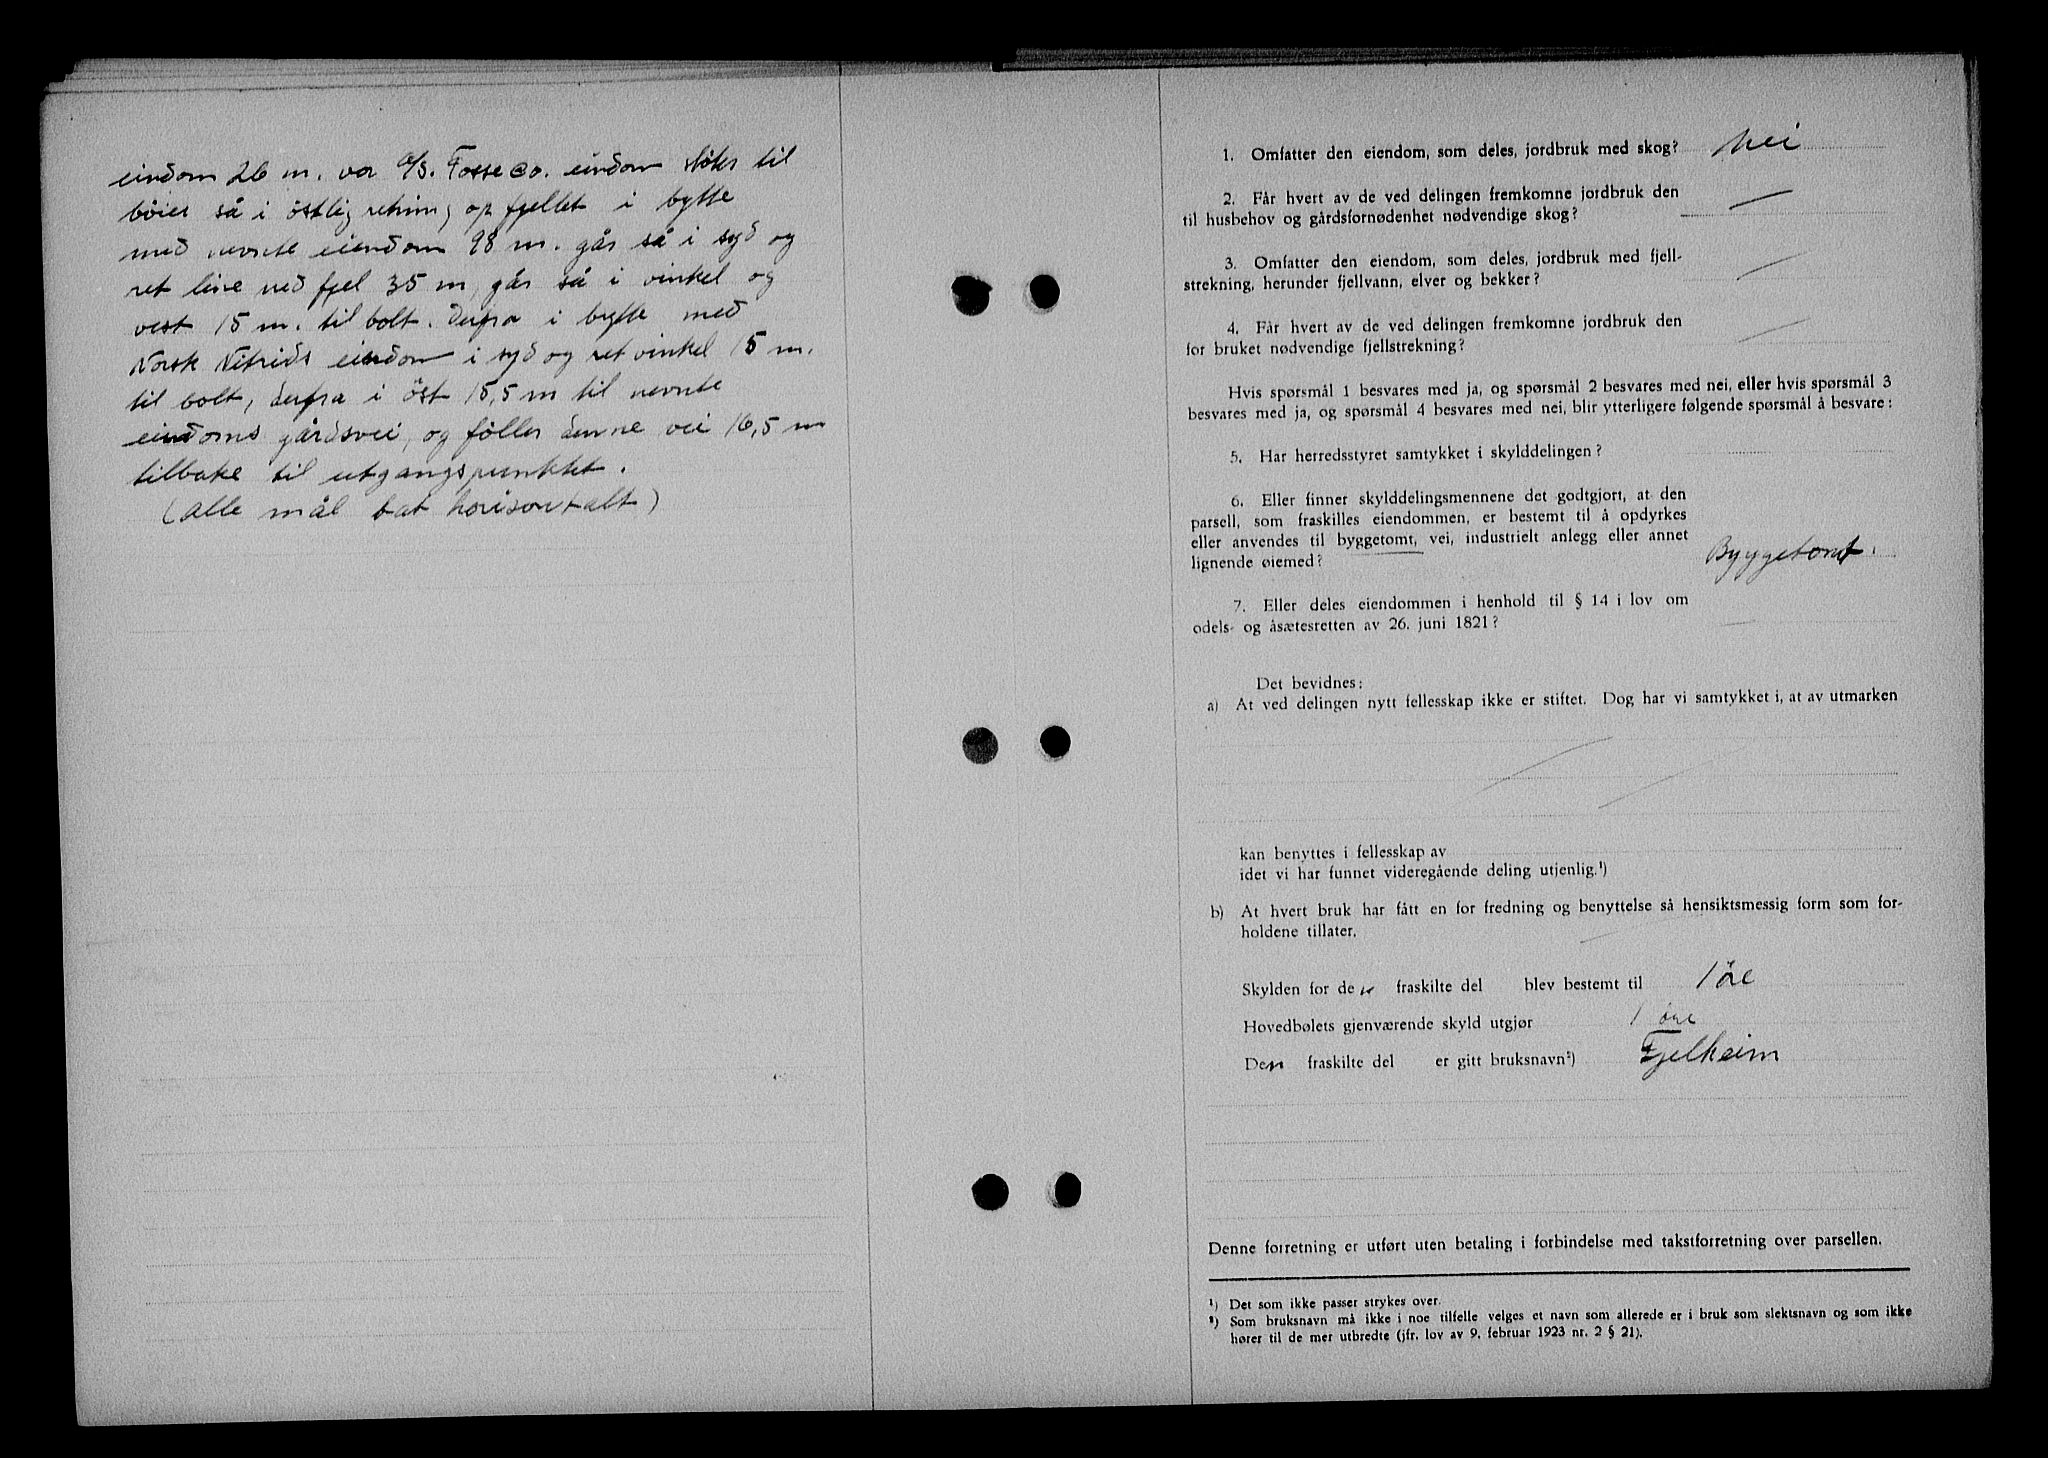 eindom 26 m. vor A/S. Fosse Co. eindom støter til
böier så i östlig retning op fjellet i bytte
med nevnte eiendom 98 m. går så i syd og
ret line ned fjel 35 m, går så i vinkel og
vest 15 m. til bolt. Derfra i bytte med
Norsk Nitrids eindom i syd og ret vinkel 15 m.
til bolt, derfra i öst 15,5 m til nevnte
eindoms gårdsvei, og föller denne vei 16,5 m
tilbake til utgangspunktet.
(alle mål tat horisontalt)
1. Omfatter den eiendom, som deles, jordbruk med skog? Nei
2. Får hvert av de ved delingen fremkomne jordbruk den
til husbehov og gårdsfornødenhet nødvendige skog? —
3. Omfatter den eiendom, som deles, jordbruk med fjell-
strekning, herunder fjellvann, elver og bekker? —
4. Får hvert av de ved delingen fremkomne jordbruk den
for bruket nødvendige fjellstrekning? —
Hvis spørsmål 1 besvares med ja, og spørsmål 2 besvares med nei, eller hvis spørsmål 3
besvares med ja, og spørsmål 4 besvares med nei, blir ytterligere følgende spørsmål å besvare:
5. Har herredsstyret samtykket i skylddelingen?
6. Eller finner skylddelingsmennene det godtgjort, at den
parsell, som fraskilles eiendommen, er bestemt til å opdyrkes
eller anvendes til byggetomt, vei, industrielt anlegg eller annet
lignende øiemed? Byggetomt.
7. Eller deles eiendommen i henhold til § 14 i lov om
odels- og åsætesretten av 26. juni 1821? —
Det bevidnes:
a) At ved delingen nytt fellesskap ikke er stiftet. Dog har vi samtykket i, at av utmarken
kan benyttes i fellesskap av
idet vi har funnet videregående deling utjenlig.¹)
b) At hvert bruk har fått en for fredning og benyttelse så hensiktsmessig form som for-
holdene tillater.
Skylden for den fraskilte del blev bestemt til 1 öre
Hovedbølets gjenværende skyld utgjør 1 öre
Den fraskilte del er gitt bruksnavn²) Fjelheim
Denne forretning er utført uten betaling i forbindelse med takstforretning over parsellen.
¹) Det som ikke passer strykes over.
²) Som bruksnavn må ikke i noe tilfelle velges et navn som allerede er i bruk som slektsnavn og som ikke
hører til de mer utbredte (jfr. lov av 9. februar 1923 nr. 2 § 21).